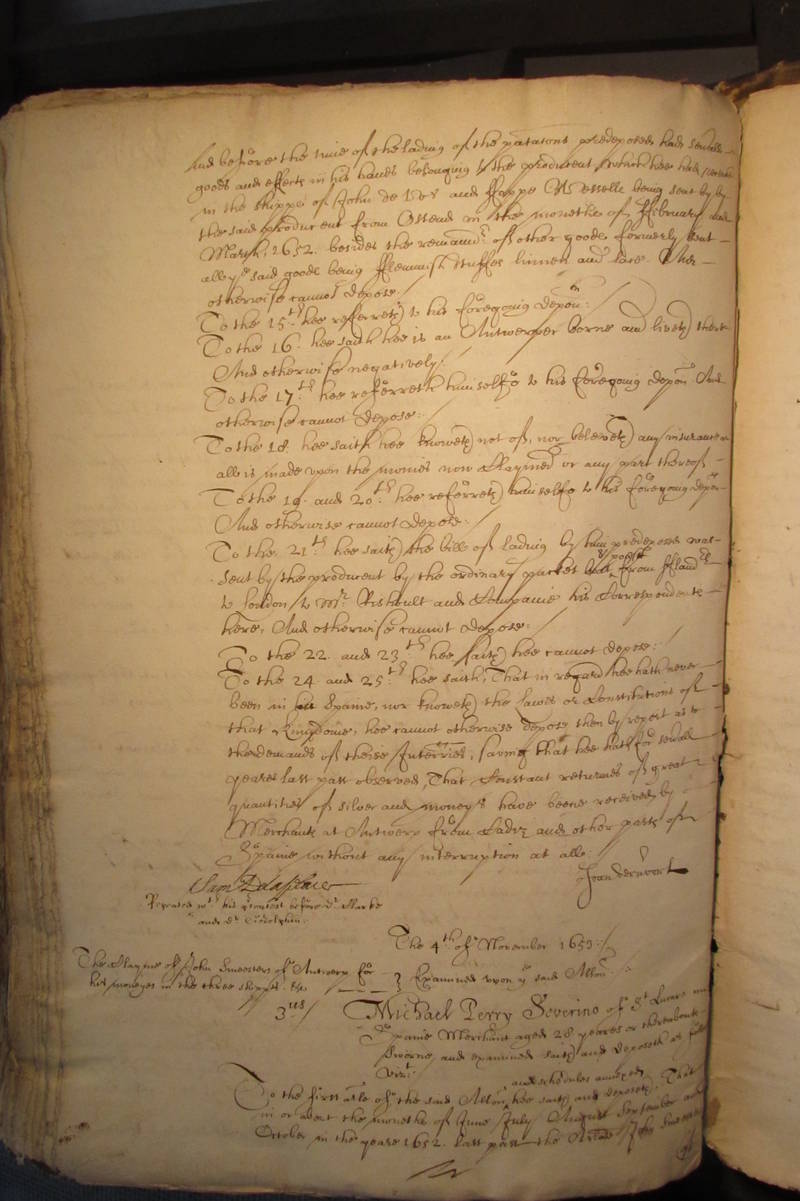 And before the time of the lading of the patacons predeposed had severall
goods and effects in his hands belonging to the producent which hee had received
in the shipps of John de Vos and being sent by
the said producent from Ostend in the moneths of ffebruary and
March 1652. besides the remaind.r of other goods formerly sent
all y.e said goods being fflemmish stuffes linnen and lace. And
otherwise cannot depose./
To the 15.th hee referreth to his foregoing depon:/
To the 16. hee saith hee is an Antwerper borne and liveth there
And otherwise negatively./
To the 17.th hee referreth himselfe to his foregoing depon And
otherwise cannot depose./
To the 18. hee saith hee knoweth not of, nor beleiveth any insurance at
all is made upon the monies now claymed or any part thereof
To the 19. and 20.th hee referreth himselfe to his foregoing depon
And otherwise cannot depose./
To the 21.th hee saith the bill of lading by him predeposed was
sent by the producent by the ordinary packet or poste from ffland.rs
to London to M.r Riskoult and Companie his Correspondents
here, And otherwise cannot depose:/
To the 22. and 23.th hee saith hee cannot depose:/
To the 24. and 25.th hee saith, That in regard hee hath never
been in Spaine, nor knoweth the lawes or Constitutions of
that Kingdome, hee cannot otherwise depose then by report as to
the demands of these Interries, saving that hee hath for severall
yeares last past observed, That Constant returnes of great
quantities of silver and moneys have beene received by
Merchants at Antwerp from Cadiz and other parts of
Spaine without any interruption at all:
Jean
Repeated w.th his Contest before d.r Clarke
and d.r Godolphin:
The 4.th of November 1653:/
The Clayme of John Smeesters of Antwerp for
his moneyes in the three shipps. &c
Examined upon y.e said Allon:
3.us/ Michael Perry Severino of S.t Lucar in
Spaine Merchant aged 28 yeares or thereabouts
sworne and examined saith and deposeth as foll
viz.t
and schedules annexed
To the first arle of the said Allon hee saith and deposeth, That
in or about the moneths of June July August September and
October in the yeare 1652. last past the Arlate John Smeesters